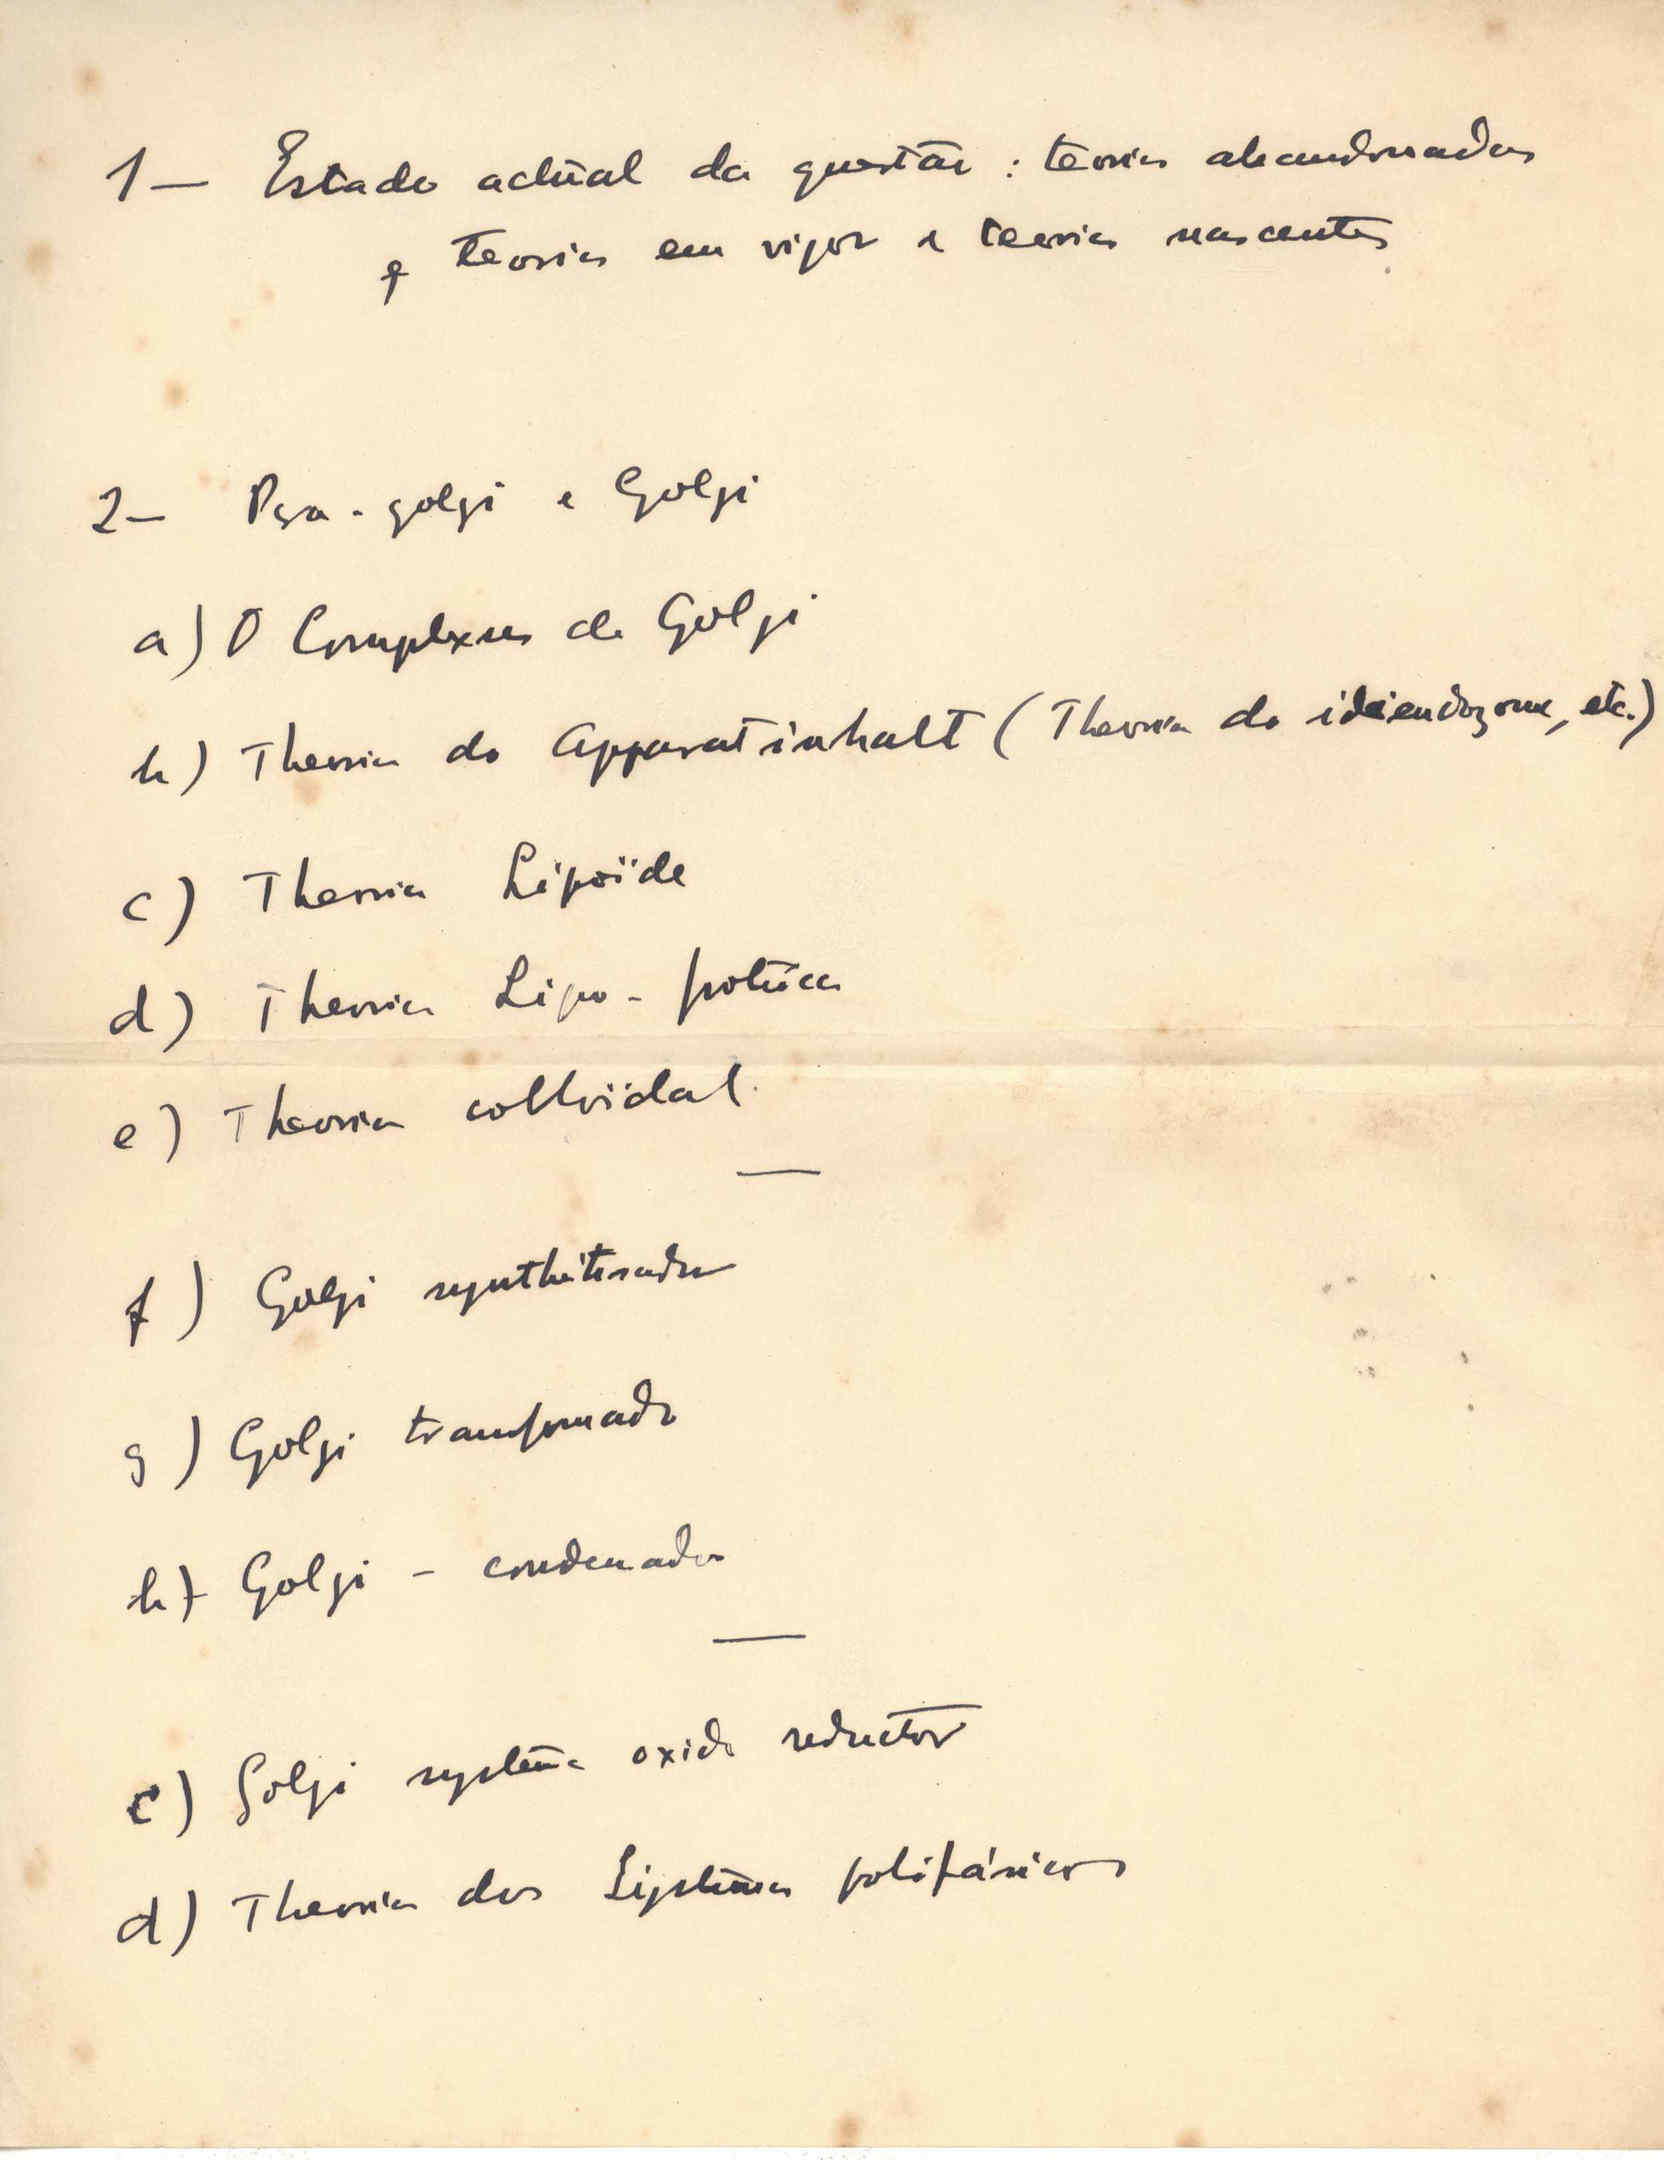 1 — Estado actual da questão : teorias abandonadas
e teorias em vigor e teorias nascentes
2 — Para-golgi e Golgi
a) O Complexus de Golgi
b) Theoria do Apparatinhalt (Theoria do idiendozome, etc.)
c) Theoria Lipoïde
d) Theoria Lipo-proteica
e) Theoria colloïdal.
f) Golgi
g) Golgi transformado
h) Golgi - condensador
c) Golgi systema oxido reductor
d) Theoria dos Systemas polifásicos